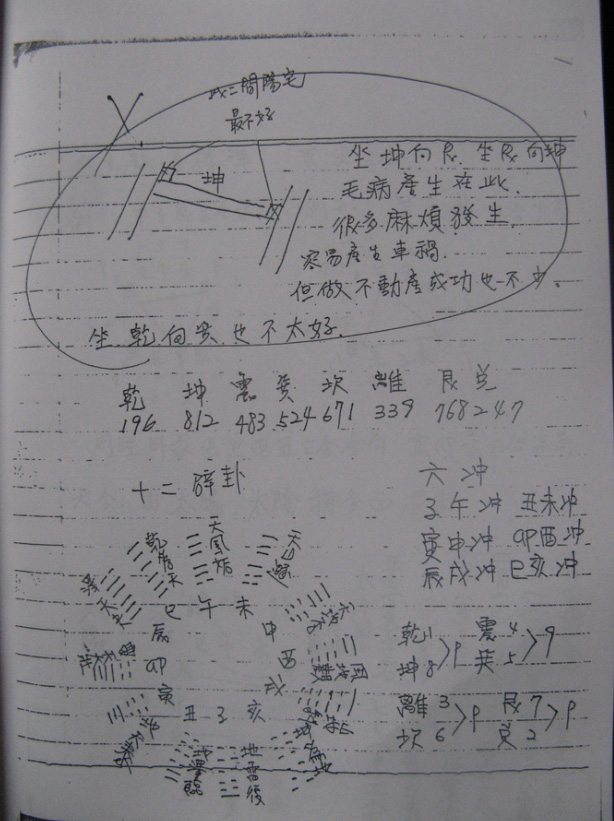 此二間陽宅
最不好
坤
坐坤向艮.坐艮向坤
毛病產生在此.
很多麻煩發生.
容易產生車禍.
但做不動產成功也不少.
坐乾向巽也不太好.
乾 坤 震 巽 坎 離 艮 兌
196 812 483 524 671 339 768 247
十二辟卦
六冲
子午冲 丑未冲
寅申冲 卯酉冲
辰戌冲 巳亥冲
乾為天 天風姤 天山遯
巳 午 未
辰 申
卯 酉
寅 戌
丑 子 亥
地澤臨 地雷復
乾1 坤8 >9 震4 巽5 >9
離3 坎6 >9 艮7 兌2 >9